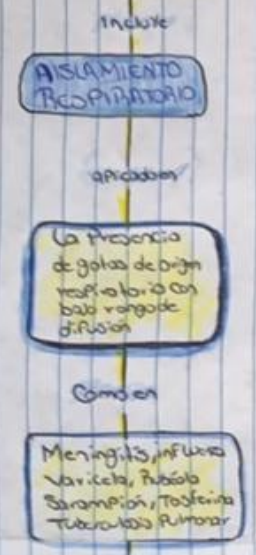 incluye
AISLAMIENTO
RESPIRATORIO
aplicado en
La Presencia
de gotas de origen
respiratorio con
bajo rango de
difusión
Como en
Meningitis, influenza
Varicela, Rubéola
Sarampión, Tosferina
Tuberculosis Pulmonar